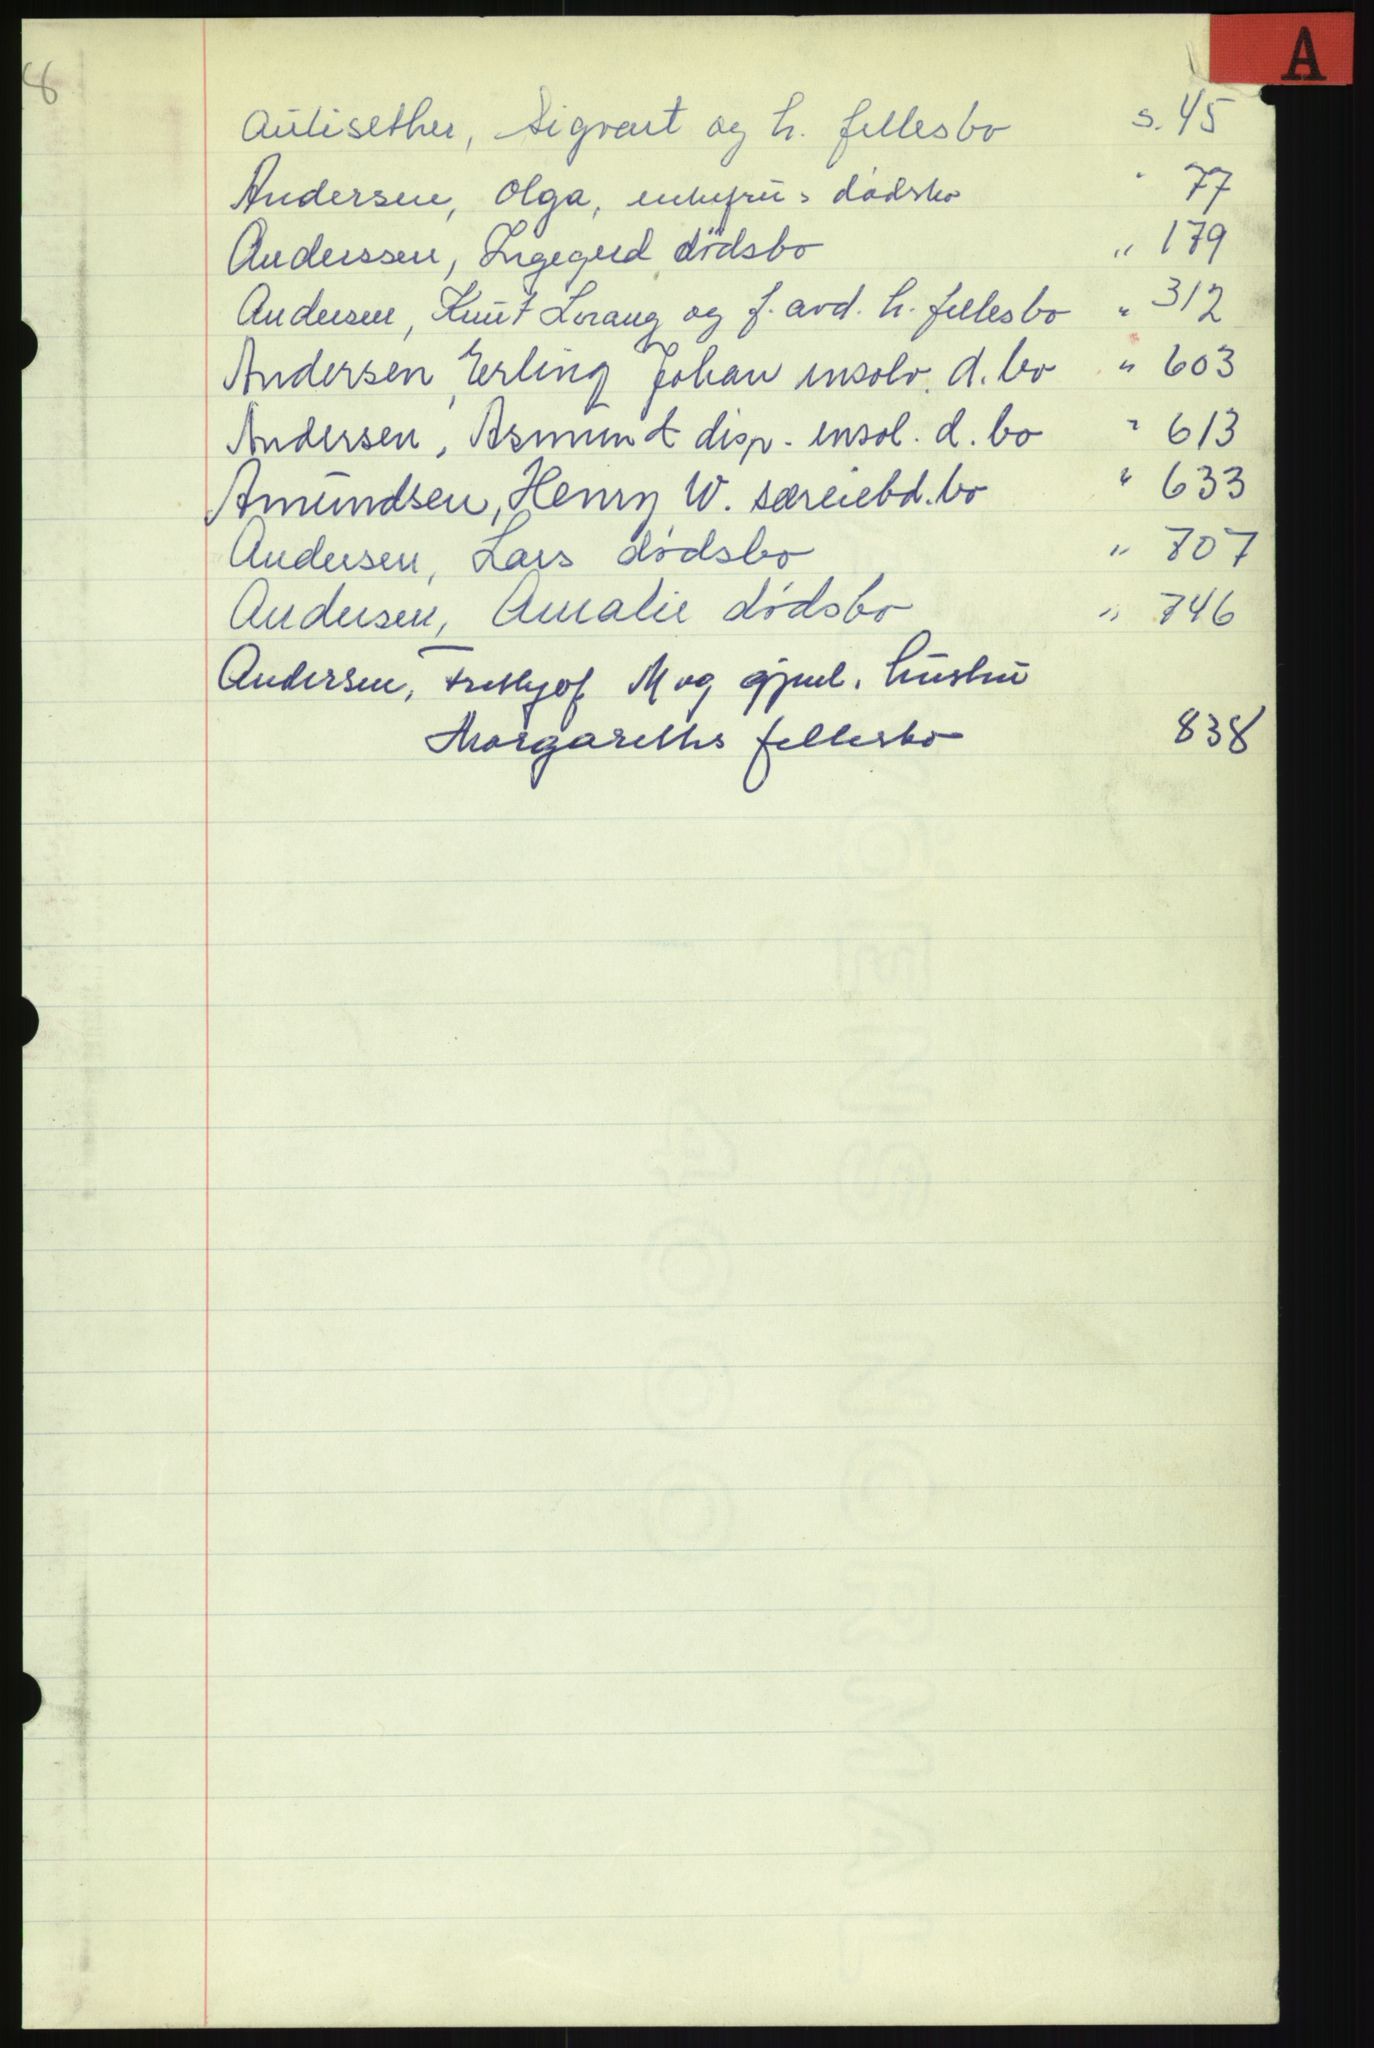 8
A
Aulisether, Sigvart og h. fellesbo s. 45
Andersen, Olga, enkefru's dødsbo " 77
Anderssen, Ingegerd dødsbo " 179
Andersen, Knut Lorang og f. avd. h. fellesbo " 312
Andersen, Erling Johan insolv. d. bo " 603
Andersen, Asmund disp. insol. d. bo " 613
Amundsen, Henry W. særeiebd. bo " 633
Andersen, Lars dødsbo " 707
Andersen, Amalie dødsbo " 746
Andersen, M og gjenl. hustru
Margareths fellesbo 838